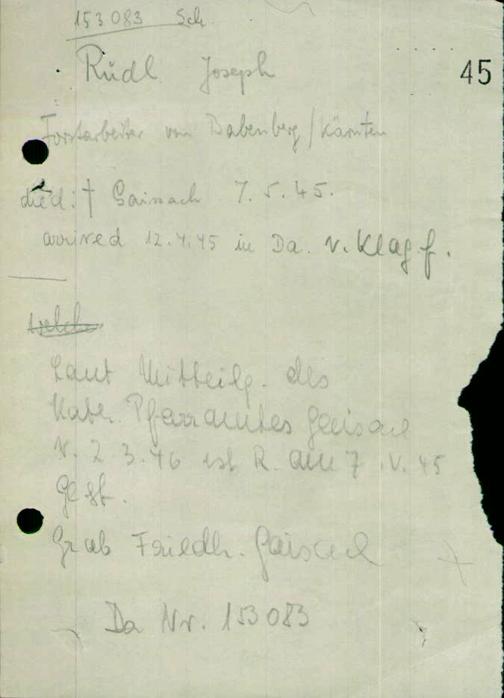 153083 Sch.
Rüdl Joseph
45
Forstarbeiter von Babenberg/Kärnten
died: † Gaissach 7.5.45.
arrived 12.4.45 in Da. v. Klagf.
welche
Laut Mitteilg. des
Kath. Pfarramtes Gaisach
v. 2.3.46 ist R. am 7.V.45
gest.
Grab Friedh. Gaisach
Da Nr. 153083